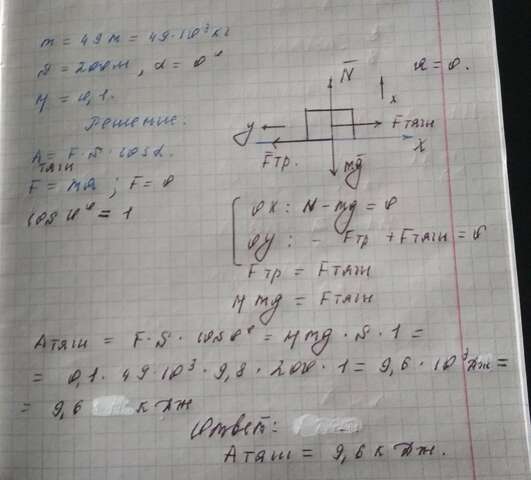 m = 49т = 49·10³ кг
S = 200м, α = 0°
μ = 0,1.
Решение:
A тяги = F·S·cosα.
F = ma ; F = 0
cos 0° = 1
a = 0.
N
x
y
Fтяги
Fтр.
X
mg
OX: N - mg = 0
OY: - Fтр + Fтяги = 0
Fтр = Fтяги
μ mg = Fтяги
Aтяги = F·S·cos0° = μmg·S·1 =
= 0,1·49·10³·9,8·200·1 = 9,6·10³Дж =
= 9,6 кДж
Ответ:
Aтяги = 9,6 кДж.